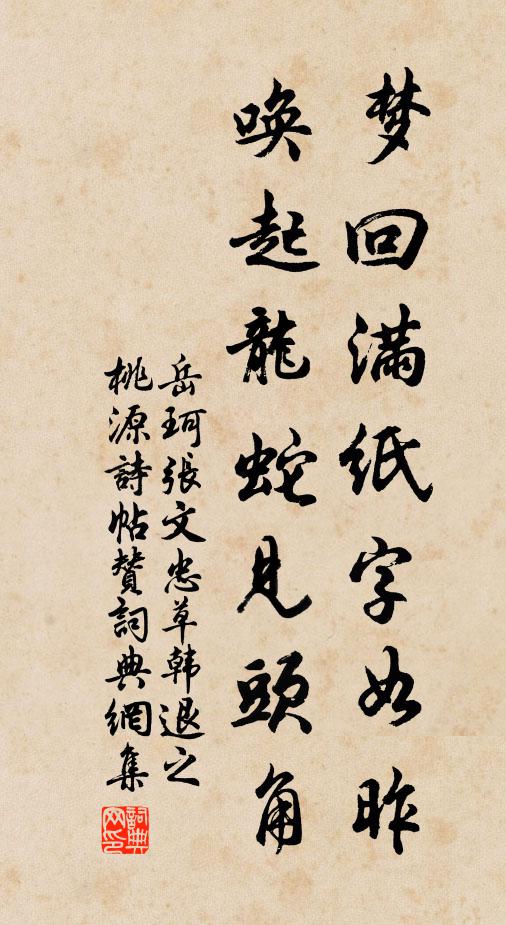 梦回满纸字如昨
唤起龍蛇見頭角
岳珂張文忠草韩退之
桃源詩帖贊詞典網集
詞典网印